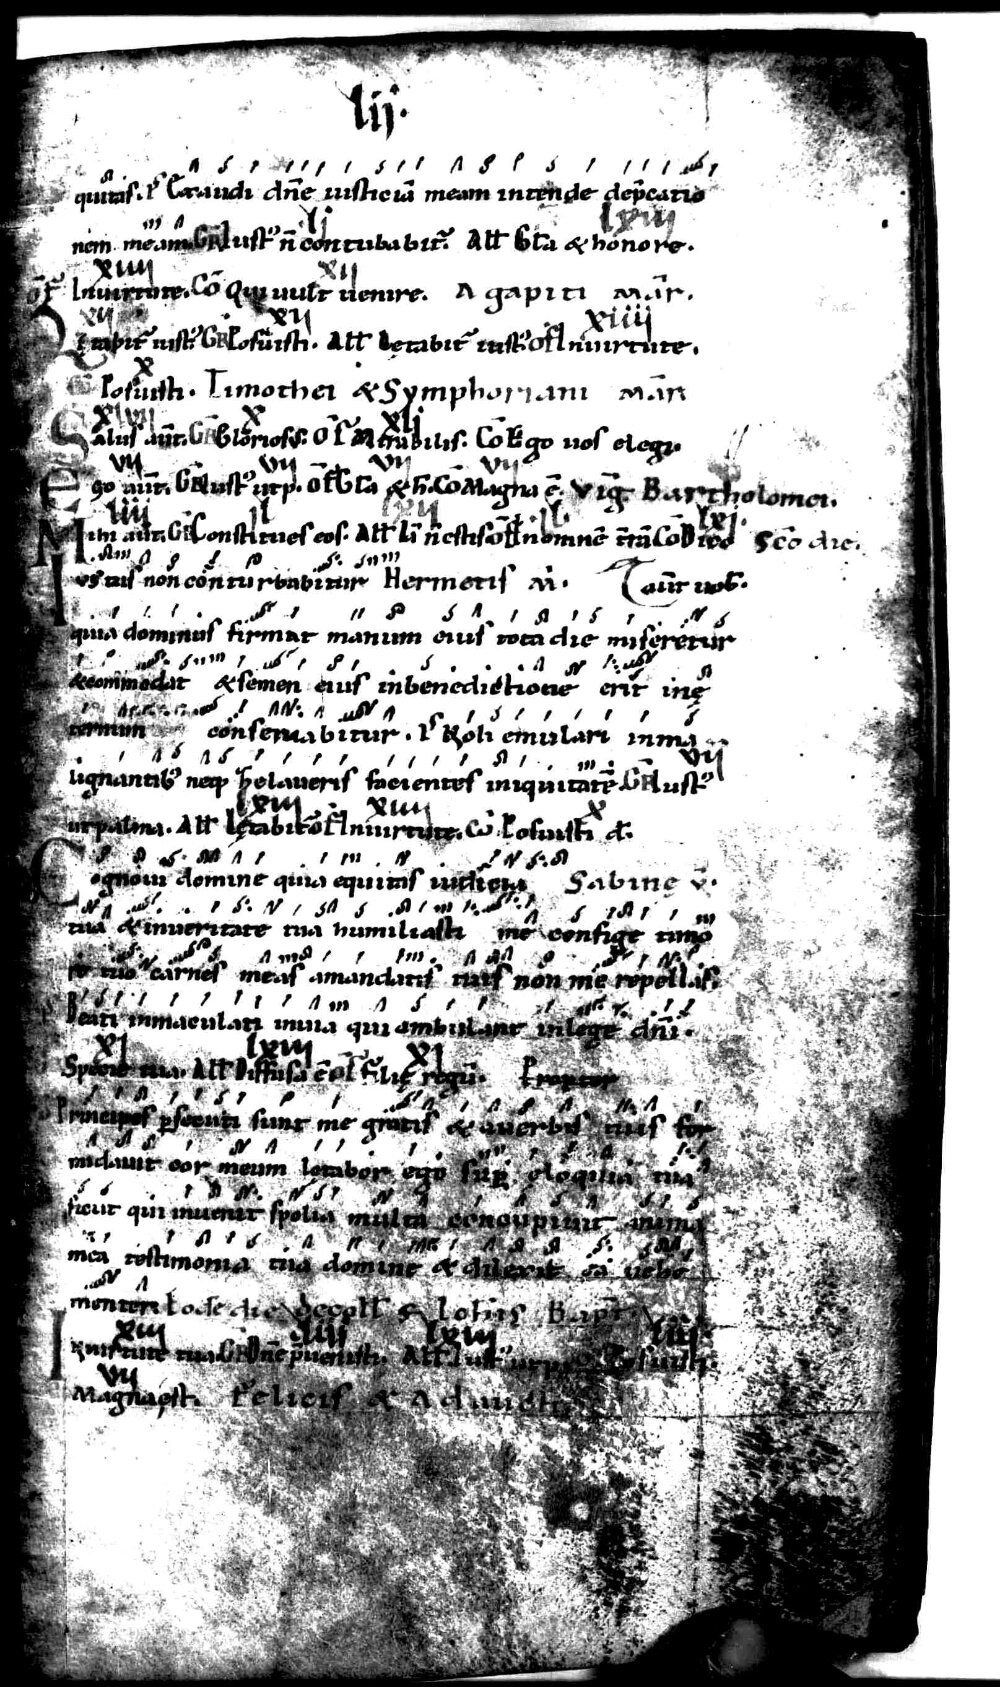 lij.
quitas. Ps Exaudi dn̄e iusticiā meam intende dep̄catio
lj lxiii
nem meam. GR Iust᷒ n̄ conturbabit᷒. All̄ Gl̄a & honore.
xiiii xii
In uirtute. Cō Qui uult uenire. Agapiti mār.
xii xv xiiii
Letabit᷒ iust᷒ GR Posuisti. All̄ Letabit᷒ iust᷒ Of̄ In uirtute.
x
Posuisti. Timothei & Symphoriani mār
xlvii x xlj
Salus aūt. GR Gloriosus. Of̄ Mirabilis. Cō Ego uos elegi.
vii vii vii vii
Ego aūt. GR Iust᷒ ut p. Of̄ Gl̄a & h̄. Cō Magna ē. Vig̅ Bartholomei.
liii l lxii ll. lxj.
Mihi aūt. GR Constitues eos. All̄ n̄ estis Of̄ In omnē t̄rā Cō Dico Sc̄o die.
Iustus non conturbabitur Hermetis M̄. aūt uob̄.
quia dominus firmat manum eius tota die miseretur
& commodat & semen eius in benedictione erit in ę
ternum conseruabitur. Ps Noli emulari in ma
vii
lignantib᷒ neq; zelaueris facientes iniquitatē. GR Iust᷒
lxiii xiiii x
ut palma. All̄ Letabit᷒ Of̄ In uirtute. Cō Posuisti d̄.
Cognoui domine quia equitas iudicia Sabine v̄.
tua & in ueritate tua humiliasti me confige timo
re tuo carnes meas a mandatis tuis non me repellas.
Ps Beati inmaculati in uia qui ambulant in lege dn̄i.
xl lxiii xl
Specie tua. All̄ Diffusa ē Of̄ Filię regū. Propter
Principes p̄secuti sunt me gratis & a uerbis tuis for
midauit cor meum letabor ego sup̄ eloquia tua
sicut qui inuenit spolia multa concupiuit anima
mea testimonia tua domine & dilexit ea uehe
menter. Eode die decoll̄ S Ioh̄is Bapt̄.
xiii liii lxiii liii.
In uirtute tua. GR Dn̄e p̄uenisti. All̄ Iust᷒ ut p Posuisti.
vii
Magna est. Felicis & Adaucti